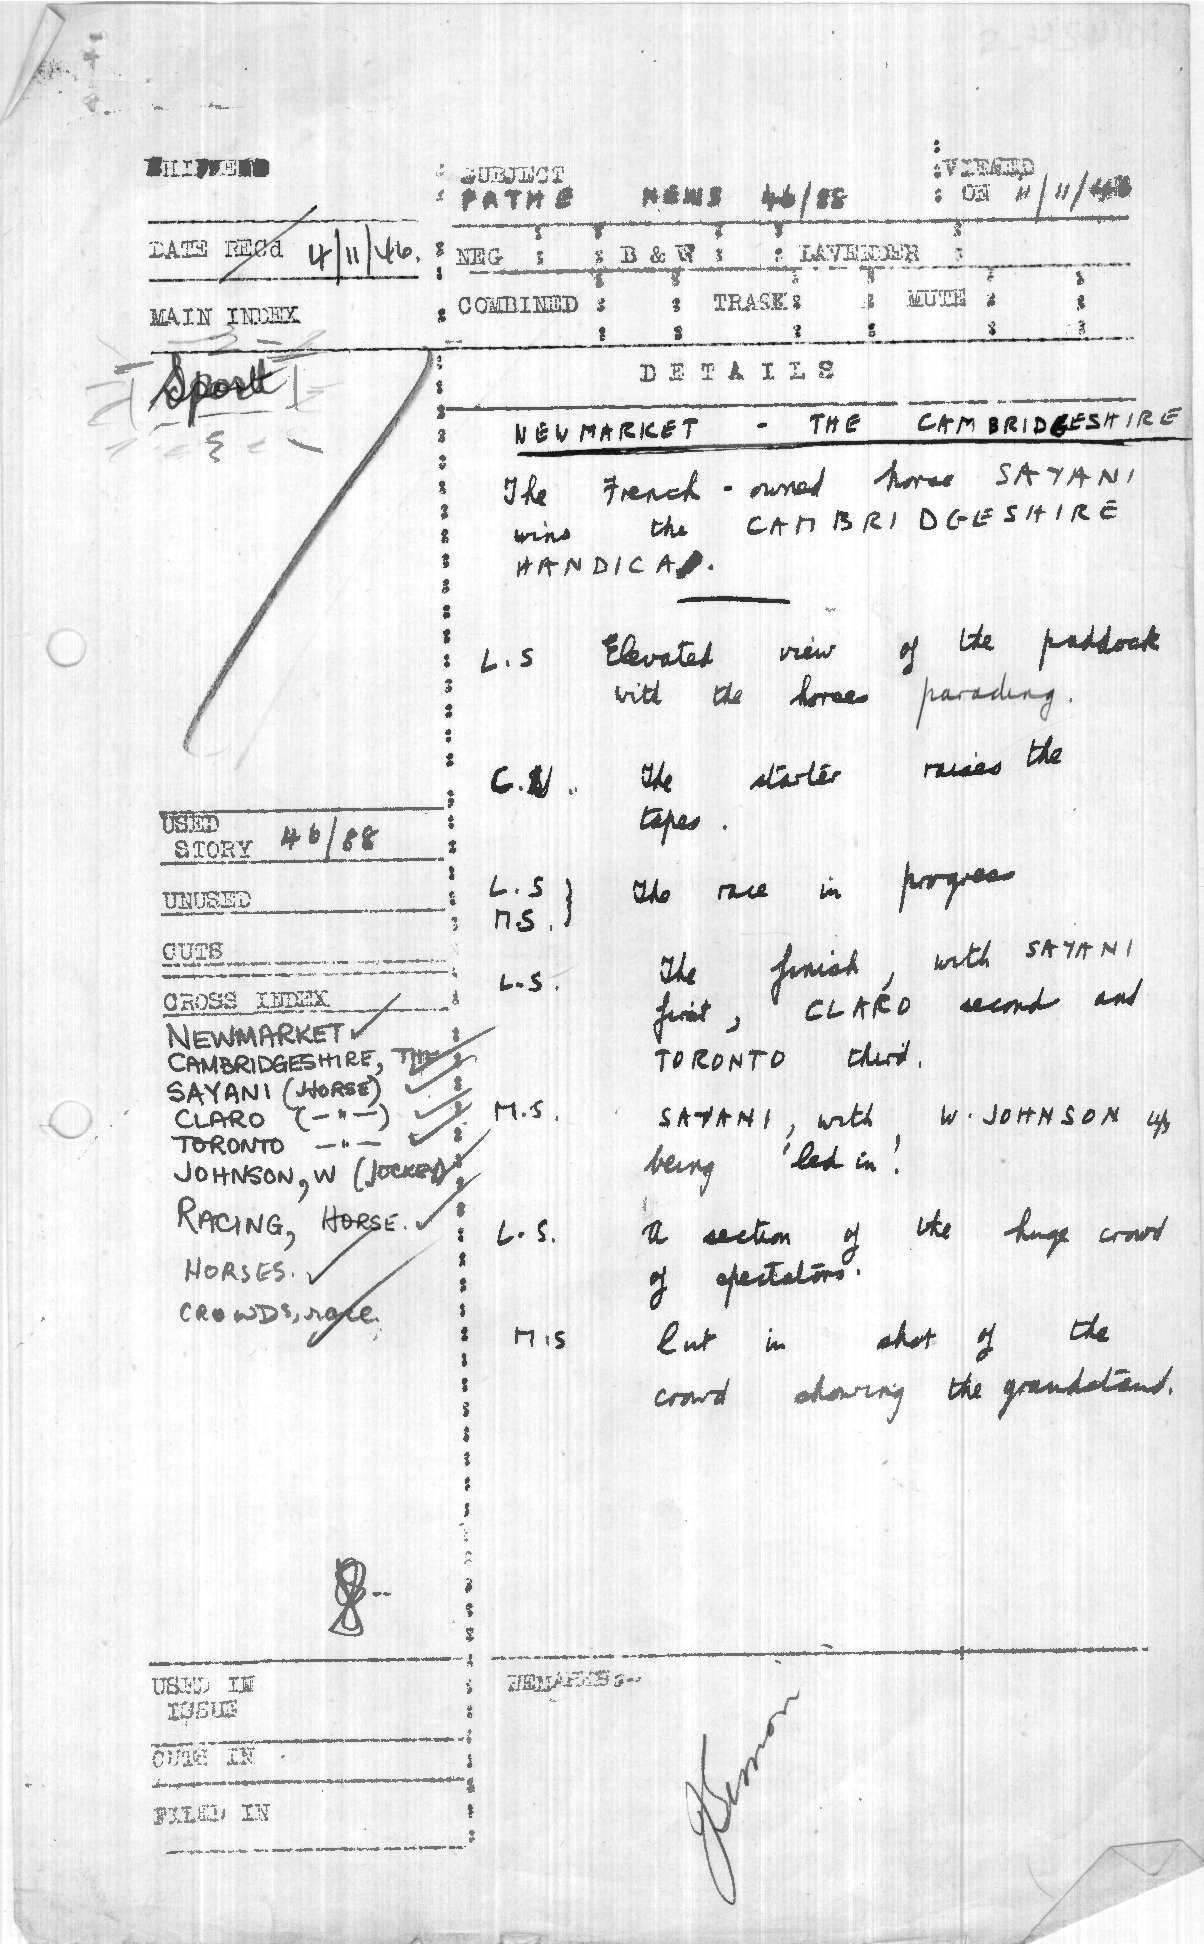 SUBJECT
PATHE NEWS 46/88
VIEWED
ON 11/11/46
DATE RECd 4/11/46.
NEG B & W LAVENDER
COMBINED TRASK MUTE
MAIN INDEX
Sport
DETAILS
NEWMARKET - THE CAMBRIDGESHIRE
The French-owned horse SAYANI
wins the CAMBRIDGESHIRE
HANDICAP.
L.S Elevated view of the paddock
with the horses parading.
The starter raises the
tapes.
L.S
M.S. } The race in progress
L.S. The finish, with SAYANI
first, CLARO second and
TORONTO third.
M.S. SAYANI, with W. JOHNSON up
being 'led in'.
L.S. A section of the huge crowd
of spectators.
M.S Cut in shot of the
crowd showing the grandstand.
USED
STORY 46/88
UNUSED
CUTS
CROSS INDEX
NEWMARKET
CAMBRIDGESHIRE, THE
SAYANI (HORSE)
CLARO (—"—)
TORONTO —"—
JOHNSON, W (JOCKEY)
RACING, HORSE.
HORSES.
CROWDS, race.
USED IN
ISSUE
CUTS IN
FILED IN
REMARKS:-